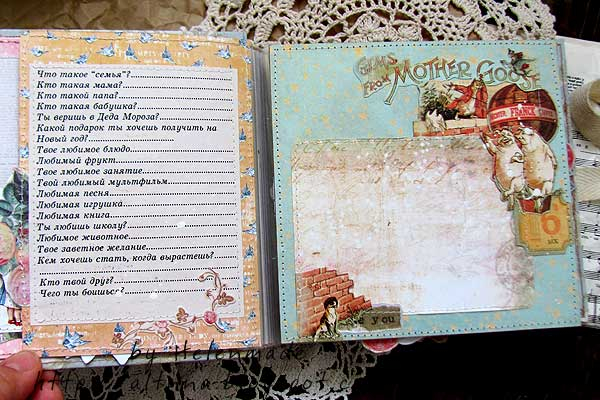 Что такое "семья"?
Кто такая мама?
Кто такой папа?
Кто такая бабушка?
Ты веришь в Деда Мороза?
Какой подарок ты хочешь получить на
Новый год?
Твое любимое блюдо
Любимый фрукт
Твое любимое занятие
Твой любимый мультфильм
Любимая песня
Любимая игрушка
Любимая книга
Ты любишь школу?
Любимое животное
Твое заветное желание
Кем хочешь стать, когда вырастешь?
Кто твой друг?
Чего ты боишься?
GEMS
FROM MOTHER GOOSE
FRANCK
10
you
by Helenmade